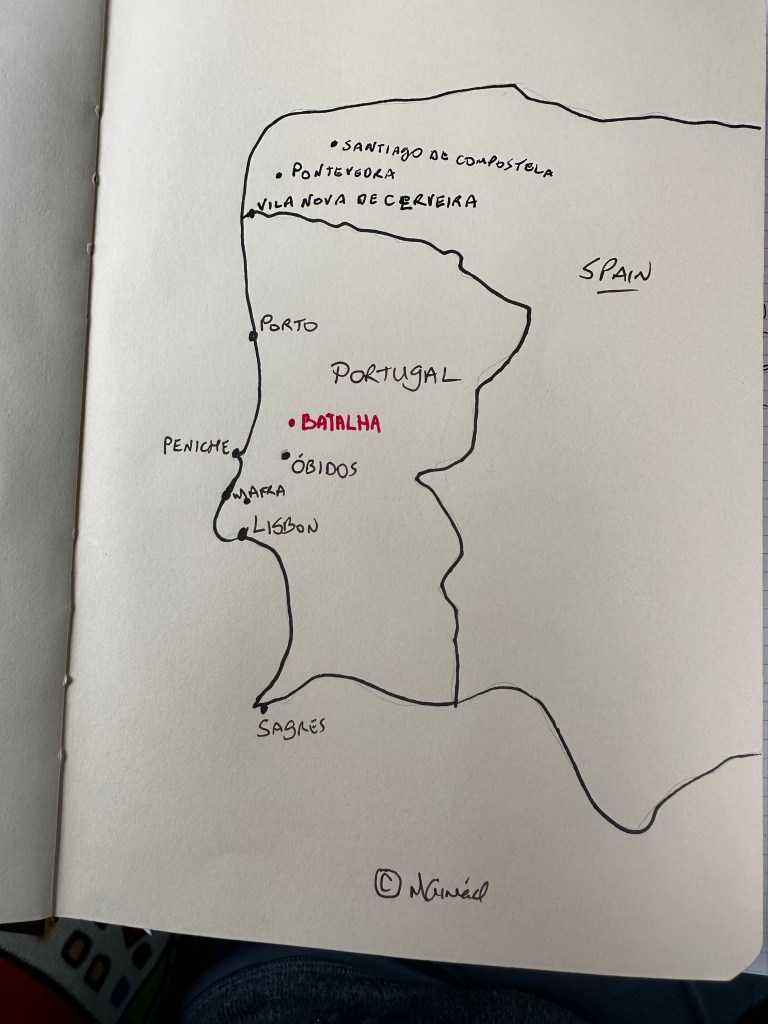 SANTIAGO DE COMPOSTELA
PONTEVEDRA
VILA NOVA DE CERVEIRA
SPAIN
PORTO
PORTUGAL
BATALHA
PENICHE
ÓBIDOS
MAFRA
LISBON
SAGRES
©